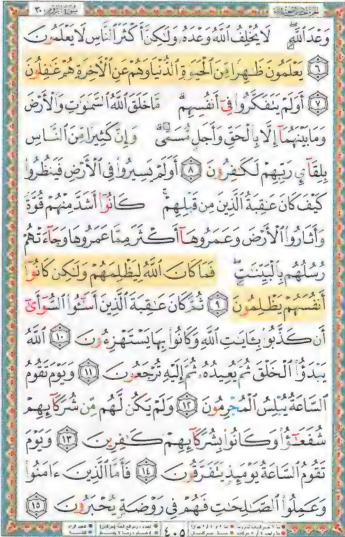 وَعْدَ ٱللَّهِ ۖ لَا يُخْلِفُ ٱللَّهُ وَعْدَهُۥ وَلَٰكِنَّ أَكْثَرَ ٱلنَّاسِ لَا يَعْلَمُونَ
٦ يَعْلَمُونَ ظَٰهِرًا مِّنَ ٱلْحَيَوٰةِ ٱلدُّنْيَا وَهُمْ عَنِ ٱلْءَاخِرَةِ هُمْ غَٰفِلُونَ
٧ أَوَلَمْ يَتَفَكَّرُوا۟ فِىٓ أَنفُسِهِم ۗ مَّا خَلَقَ ٱللَّهُ ٱلسَّمَٰوَٰتِ وَٱلْأَرْضَ
وَمَا بَيْنَهُمَآ إِلَّا بِٱلْحَقِّ وَأَجَلٍ مُّسَمًّى ۗ وَإِنَّ كَثِيرًا مِّنَ ٱلنَّاسِ
بِلِقَآئِ رَبِّهِمْ لَكَٰفِرُونَ ٨ أَوَلَمْ يَسِيرُوا۟ فِى ٱلْأَرْضِ فَيَنظُرُوا۟
كَيْفَ كَانَ عَٰقِبَةُ ٱلَّذِينَ مِن قَبْلِهِمْ ۚ كَانُوٓا۟ أَشَدَّ مِنْهُمْ قُوَّةً
وَأَثَارُوا۟ ٱلْأَرْضَ وَعَمَرُوهَآ أَكْثَرَ مِمَّا عَمَرُوهَا وَجَآءَتْهُمْ
رُسُلُهُم بِٱلْبَيِّنَٰتِ ۖ فَمَا كَانَ ٱللَّهُ لِيَظْلِمَهُمْ وَلَٰكِن كَانُوٓا۟
أَنفُسَهُمْ يَظْلِمُونَ ٩ ثُمَّ كَانَ عَٰقِبَةَ ٱلَّذِينَ أَسَٰٓـُٔوا۟ ٱلسُّوٓأَىٰٓ
أَن كَذَّبُوا۟ بِـَٔايَٰتِ ٱللَّهِ وَكَانُوا۟ بِهَا يَسْتَهْزِءُونَ ١٠ ٱللَّهُ
يَبْدَؤُا۟ ٱلْخَلْقَ ثُمَّ يُعِيدُهُۥ ثُمَّ إِلَيْهِ تُرْجَعُونَ ١١ وَيَوْمَ تَقُومُ
ٱلسَّاعَةُ يُبْلِسُ ٱلْمُجْرِمُونَ ١٢ وَلَمْ يَكُن لَّهُم مِّن شُرَكَآئِهِمْ
شُفَعَٰٓؤُا۟ وَكَانُوا۟ بِشُرَكَآئِهِمْ كَٰفِرِينَ ١٣ وَيَوْمَ
تَقُومُ ٱلسَّاعَةُ يَوْمَئِذٍ يَتَفَرَّقُونَ ١٤ فَأَمَّا ٱلَّذِينَ ءَامَنُوا۟
وَعَمِلُوا۟ ٱلصَّٰلِحَٰتِ فَهُمْ فِى رَوْضَةٍ يُحْبَرُونَ ١٥
٤٠٥